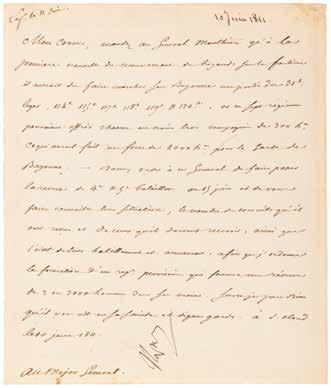 10 Juin 1811.
Mon Cousin, mandez au Général Monthion qu'à la
première nouvelle de mouvement de brigands sur la frontière
il aurait dû faire marcher sur Bayonne un partie du 31e
léger, 114e 115e 117e 118e 119e & 120e, ces sept régimens
pouvaient offrir chacun au moins trois compagnies de 300 h.
Ce qui aurait fait une force de 2000 h. pour la garde de
Bayonne. — Donnez ordre à ce Général de faire passer
la revue des 4e & 5e bataillon au 15 juin et de vous
faire connaître leur situation, le nombre de conscrits qu'ils
ont reçu et de ceux qu'ils doivent recevoir, ainsi que
l'état de leur habillement et armement, afin que j'ordonne
la formation d'un régt provisoire qui formera une réserve
de 2 ou 3000 hommes. Sur ce je prie Dieu
qu'il vous ait en sa sainte et digne garde. à St Cloud
le 10 juin 1811.
Au Major Général.